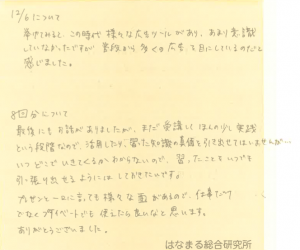 12/6について
夢中でみると、この時代様々な広告ツールがあり、あまり意識
していなかったですが普段から多くの広告を目にしているのだと
感じました。
8回分について
最後にもお話がありましたが、まだ受講してほんの少し実践
という段階なので、活用したり、習った知識の真価を引き出せてはいませんが…
いつどこでいきてくるかわからないので、習ったことをいつでも
引っ張り出せるようにはしておきたいです。
プレゼン一つに言っても様々な面があるので、仕事だけ
でなくプライベートでも使えたら良いなと思います。
ありがとうございました。
はなまる総合研究所